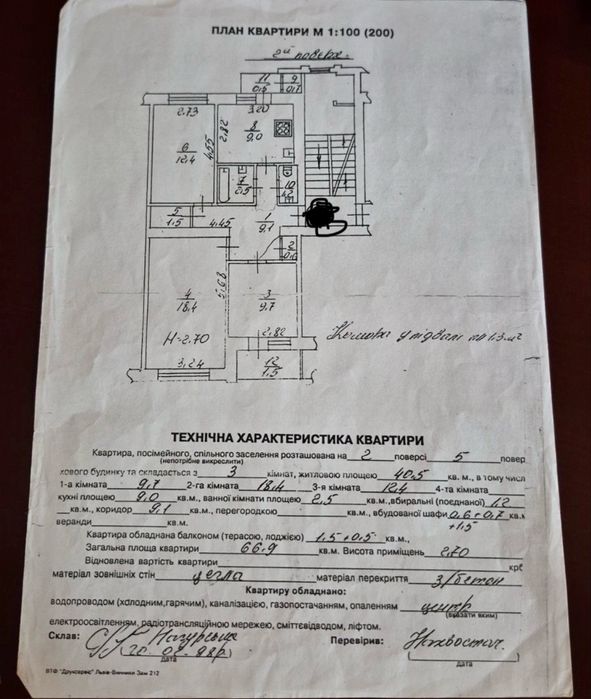 ПЛАН КВАРТИРИ М 1:100 (200)
2ий поверх
11
0.5
9
0.7
2.73
3.20
6
12.4
4.55
2.82
8
9.0
7
2.5
10
1.2
5
1.5
4.45
1
9.1
2
0.6
4
18.4
5.68
3
9.7
H-2.70
2.82
3.24
12
1.5
Комора у підвалі пл 1.3 м²
ТЕХНІЧНА ХАРАКТЕРИСТИКА КВАРТИРИ
Квартира, посімейного, спільного заселення розташована на 2 поверсі 5 повер
(непотрібне викреслити)
хового будинку та складається з 3 кімнат, житловою площею 40,5 кв. м., в тому числі
1-а кімната 9,7 2-га кімната 18,4 3-я кімната 12,4 4-та кімната
кухні площею 9,0 кв.м., ванної кімнати площею 2,5 кв.м.,вбиральні (поєднаної) 1,2
кв.м., коридор 9,1 кв.м., перегородкою кв.м., вбудованої шафи 0,6+0,7 кв.м
+1,5
веранди кв.м.
Квартира обладнана балконом (терасою, лоджією) 1,5+0,5 кв.м.,
Загальна площа квартири 66,9 кв.м. Висота приміщень 2,70
Відновлена вартість квартири крб
матеріал зовнішніх стін цегла матеріал перекриття з/бетон
Квартиру обладнано:
водопроводом (холодним,гарячим), каналізацією, газопостачанням, опаленням центр
(вказати яким)
електроосвітленням, радіотрансляційною мережею, сміттєвідводом, ліфтом.
Склав: Перевірив:
дата
дата
ВТФ "Друксервіс" Львів-Винники Зам 212